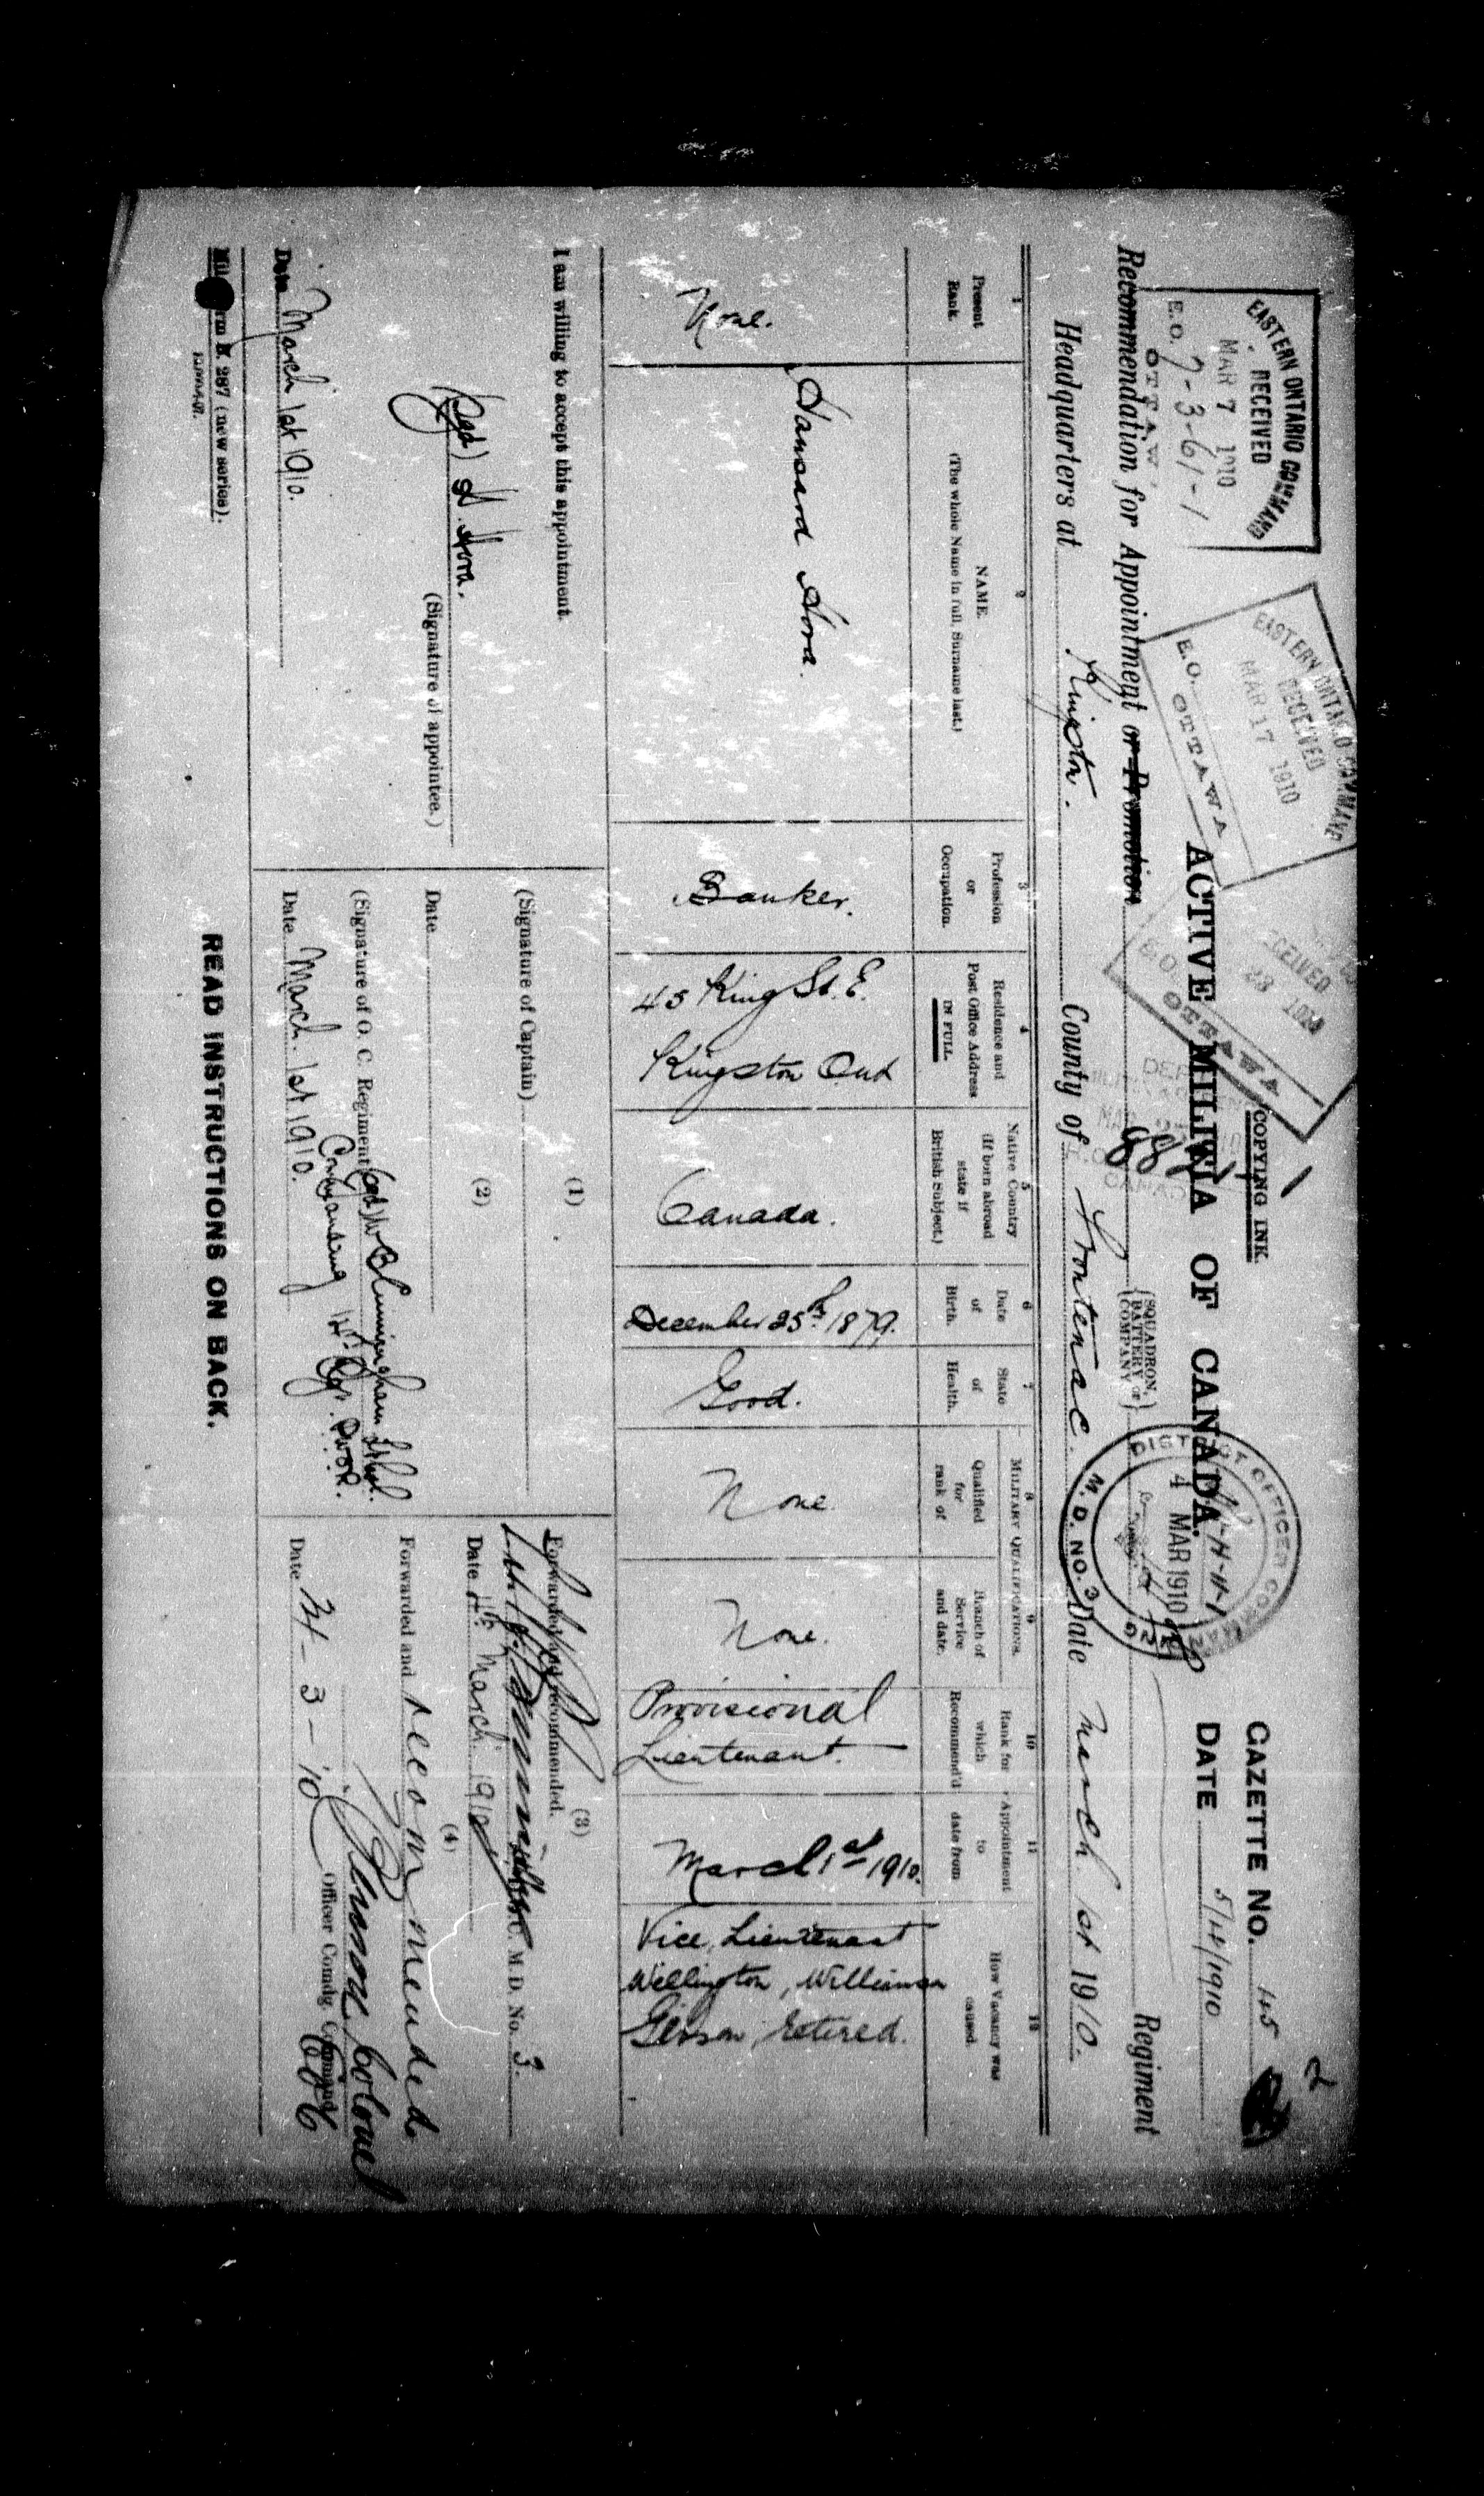 GAZETTE NO. 45
2
COPYING INK.
ACTIVE MILITIA OF CANADA.
DATE 5/4/1910
EASTERN ONTARIO COMMAND
RECEIVED
MAR 7 1910
E.O. 7-3-61-1
OTTAWA
EASTERN ONTARIO COMMAND
RECEIVED
MAR 17 1910
E.O. OTTAWA
RECEIVED
23 1910
E.O. OTTAWA
DISTRICT OFFICER COMMANDING
4 MAR 1910
M. D. NO. 3
Recommendation for Appointment or Promotion
{SQUADRON, BATTERY or COMPANY}
Regiment
Headquarters at Kingston. County of Frontenac. Date March 1st 1910.
1
Present Rank.
2
NAME.
(The whole Name in full, Surname last.)
3
Profession or Occupation.
4
Residence and Post Office Address IN FULL.
5
Native Country (If born abroad state if British Subject.)
6
Date of Birth.
7
State of Health.
MILITARY QUALIFICATIONS.
8
Qualified for rank of
9
Branch of Service and date.
10
Rank for which Recommend'd
11
Appointment to date from
12
How Vacancy was caused.
None.
Hansard Hora.
Banker.
45 King St. E.
Kingston Ont
Canada.
December 25th 1879.
Good.
None
None.
Provisional
Lieutenant.
March 1st 1910.
Vice, Lieutenant
Wellington, Williamson
retired.
I am willing to accept this appointment
(Sgd) H. Hora.
(Signature of appointee.)
Date March 1st 1910.
(1)
(Signature of Captain)
(2)
Date
(Signature of O. C. Regiment) (Sgd) W B
Commanding 14th Rgt. P.W.O.R.
Date March 1st 1910.
(3)
Forwarded and recommended.
M. D. No. 3.
Date 4th March 1910
(4)
Forwarded and recommended
Colonel
Officer Comdg. Command
Date
287 (new series).
READ INSTRUCTIONS ON BACK.